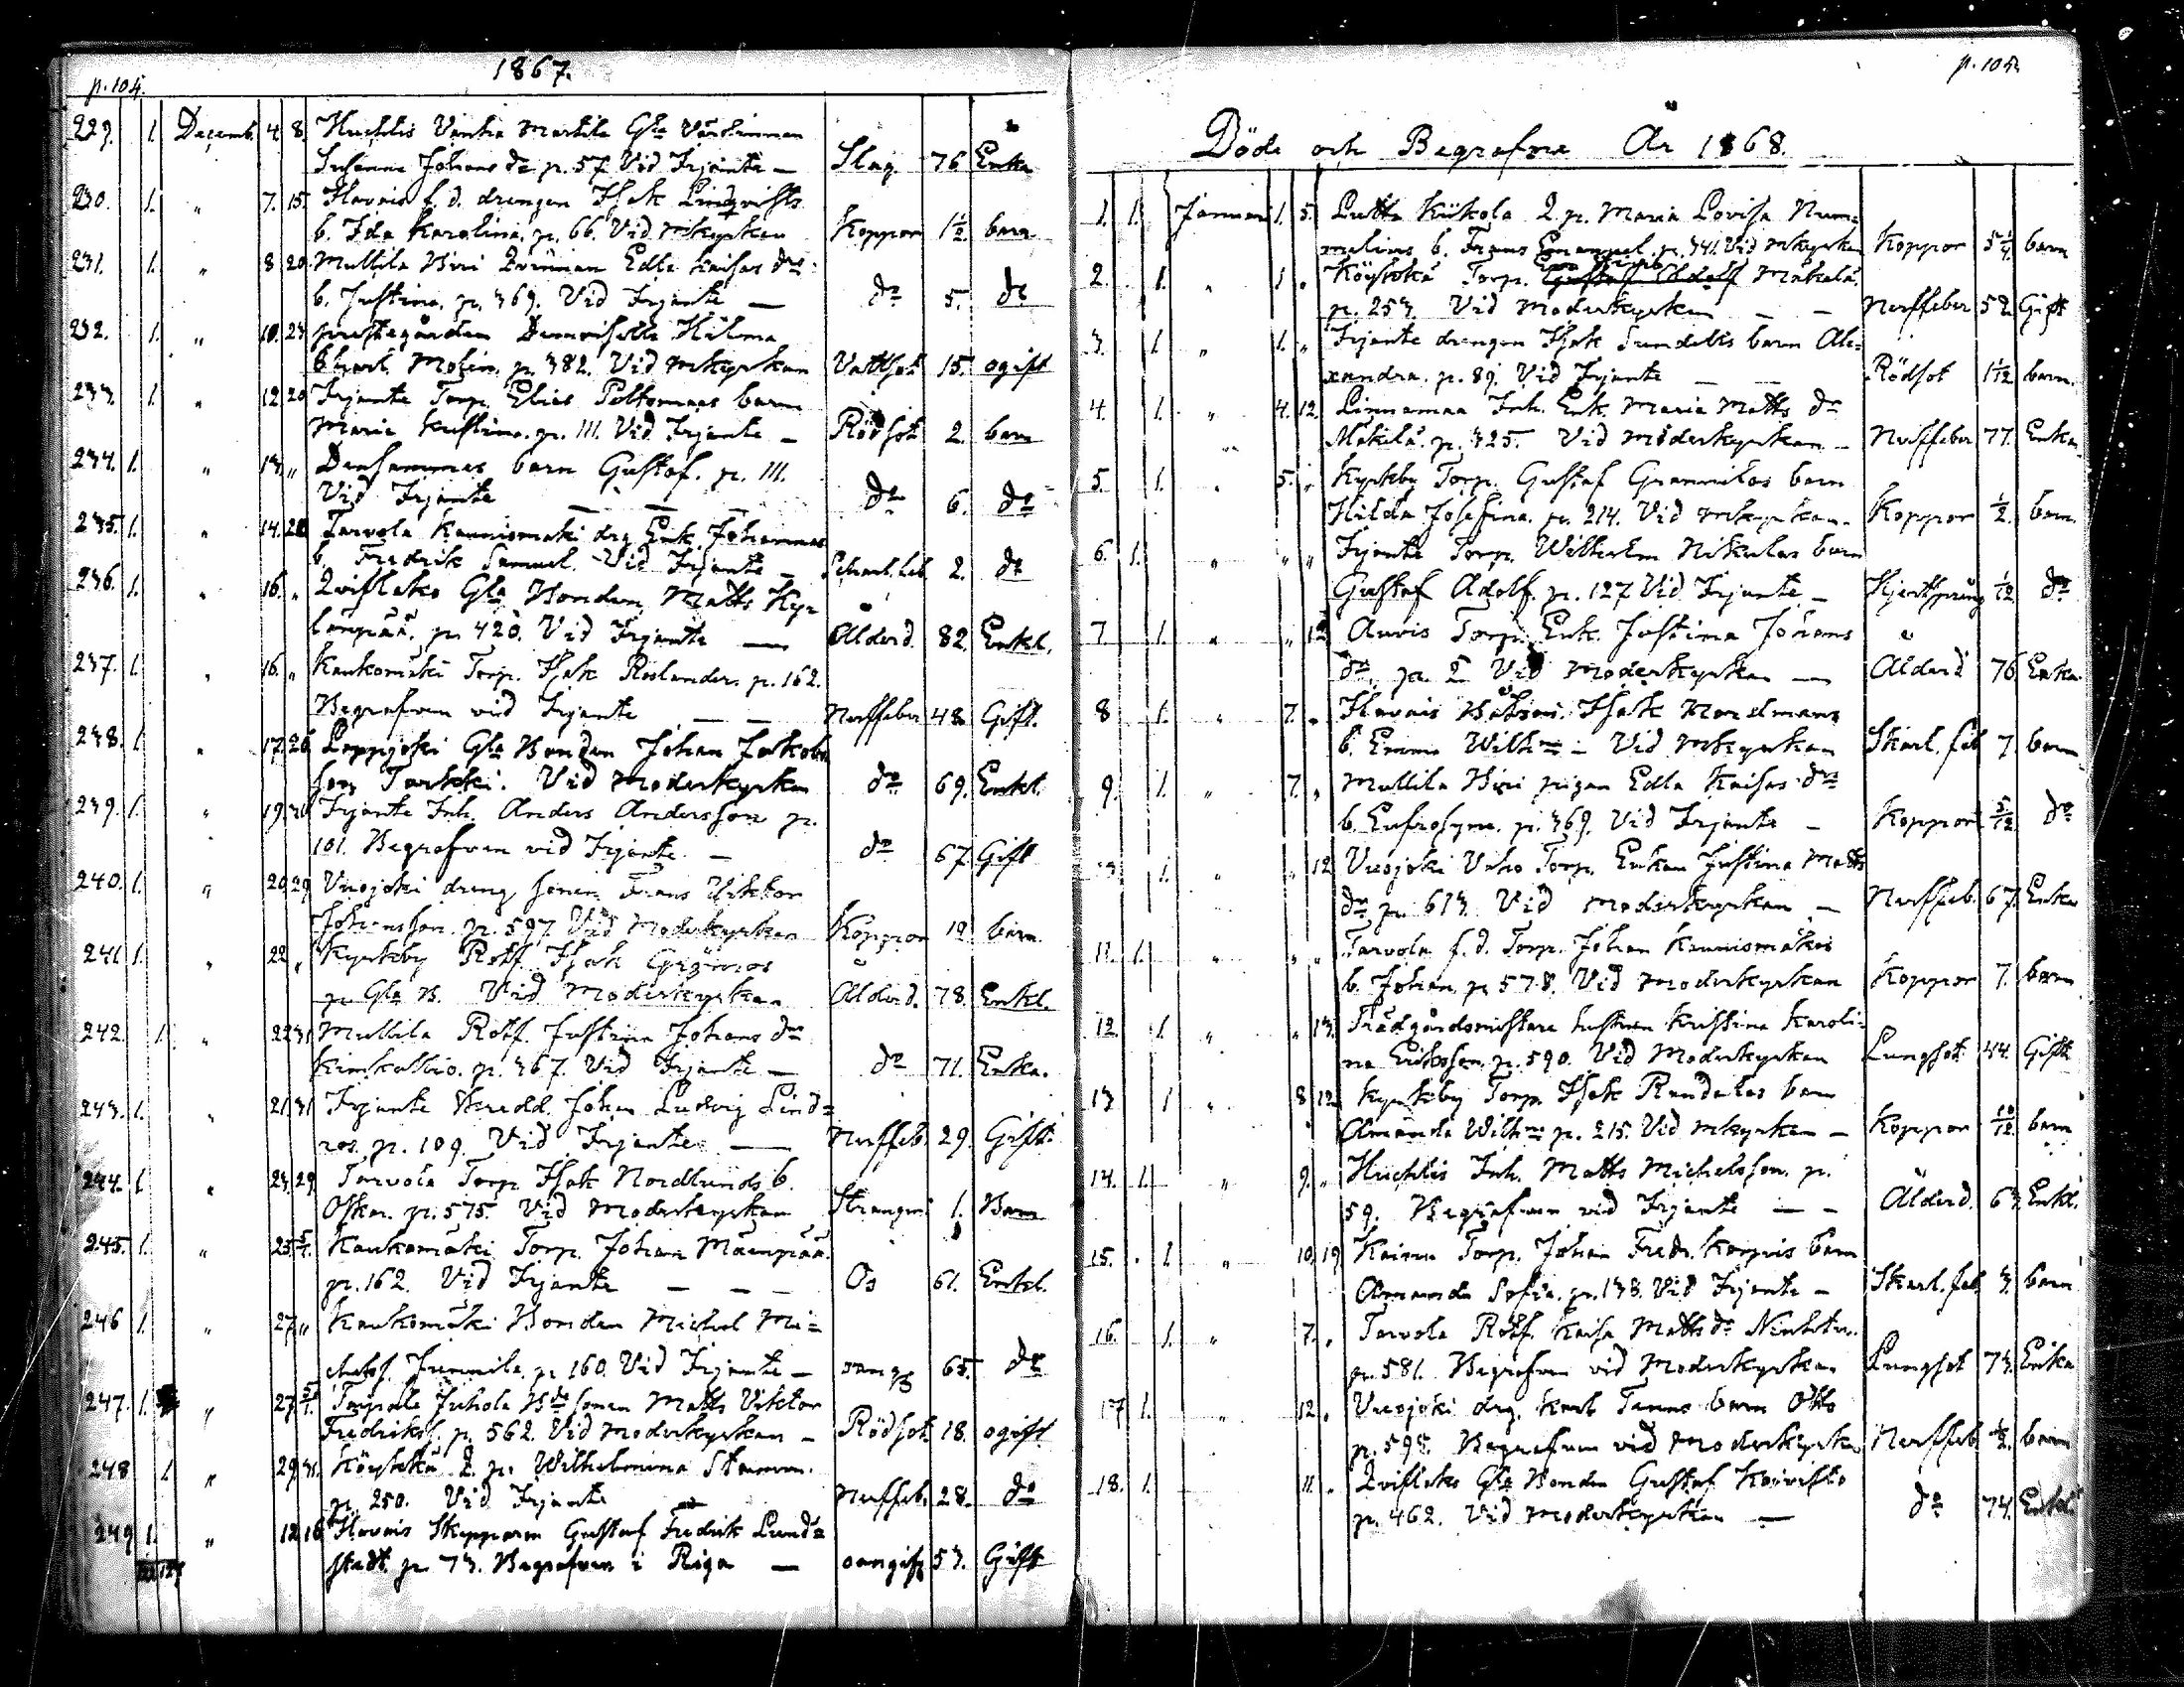 p. 104.
1867.
229. 1. Decemb. 4. 8. Huchtis Vanha Martila Gla Värdinnan
Susanna Johans dr p. 57. Vid Irjante — Slag. 76 Enka
230. 1. " 7. 15. Ilavais f. d. drengen Isak Lindqvists
b. Ida Karolina. p. 66. Vid Mkyrkan Koppor 1½. barn
231. 1. " 8 20. Mullila Kivi Qvinnan Edla Kaisas drs
b. Justina. p. 369. Vid Irjante — do 5. do
232. 1. " 10. 23 prestegården Demoiselle Hilma
Molin. p. 382. Vid Mkyrkan Vattsot 15. ogift
233. 1. " 12 20 Irjante Torp. Elias Poltomaas barn
Maria Kristina. p. 111. Vid Irjante — Rödsot. 2. barn
234. 1. " 13. " Densammas barn Gustaf. p. 111.
Vid Irjante — — — do 6. do
235. 1. " 14. 20 Tarvola Kaunismäki drg Enk. Johannas
b. Fredrik Samuel. Vid Irjante — Scharl. feb. 2. do
236. 1. " 16. " Qvifleks Gla Bonden Matts Kyr
länpää. p. 420. Vid Irjante — Ålderd. 82. Enkl.
237. 1. " 16. " Kaukomäki Torp. Isak Roslander. p. 162.
Begrafven vid Irjante — — Nerffeber 48. Gift.
238. 1. " 17. 26 Lappijoki Gla Bonden Johan Jakobs
son Tarkki. Vid Moderkyrkan do 69. Enkl.
239. 1. " 19. 26 Irjante Inh. Anders Andersson p.
101. Begrafven vid Irjante — do 67. Gift
240. 1. " 20. 29. Vuojoki dreng sonen Frans Viktor
Johansson. p. 597. Vid Moderkyrkan Koppor 12 barn.
241. 1. " 22 " Kyrkby Rotf. Isak Grönroos
p. Gla B. Vid Moderkyrkan Ålderd. 78. Enkl.
242. 1. " 22 31 Mullila Rotf. Justina Johans dr
Kinkallio. p. 367. Vid Irjante — do 71. Enka.
243. 1. " 21 31 Irjante Skredd. Johan Ludvig Lind=
ros. p. 109. Vid Irjante — Nerffeb. 29. Gift.
244. 1. " 23. 29. Tarvola Torp. Isak Nordlunds b.
Oskar. p. 575. Vid Moderkyrkan 1. Barn
245. 1. " 25. 5/1. Kaukomäki Torp. Johan Mäenpää.
p. 162. Vid Irjante — — — Os 61. Enkl.
246 1. " 27 " Kaukomäki Bonden Michel Mi=
chelss. Junnila. p. 160. Vid Irjante — 65. do
247. 1. " 27 5/1. Taipale Juhola Bde sonen Matts Viktor
Fredrikss. p. 562. Vid Moderkyrkan — Rödsot. 18. ogift.
248 1. " 29 31. Köykkä Q. p. Wilhelmina
p. 250. Vid Irjante — Nerffeb. 28. do
249 1. " 12 16 Ilavais Skepparen Gustaf Fredrik Lund=
stedt p. 73. Begrafven i Riga — oangifv 53. Gift
p. 105.
Döde och Begrafne År 1868.
1. 1. Januari 1. 5. Lutta Kiikola Q. p. Maria Lovisa Num=
melins b. Frans Emanuel. p. 341. Vid Mkyrkan Koppor 5¼. barn
2. 1. " 1 " Köykkä Torp. Mäkelä.
p. 253. Vid Moderkyrkan — — Nerffeber 52. Gift
3. 1. " 1. " Irjante drengen Isak Sundells barn Ale=
xandra. p. 89. Vid Irjante — — Rödsot 1 1/12 barn.
4. 1. " 4. 12. Linnamaa Inh. Enk. Maria Matts dr
Mäkilä. p. 325. Vid Moderkyrkan — Nerffeber 77. Enka
5. 1. " 5. " Kyrkby Torp. Gustaf Grannilas barn
Hilda Josefina. p. 214. Vid Mkyrkan. Koppor ½. barn.
6. 1. " " " Irjante Torp. Wilhelm Nikulas barn
Gustaf Adolf. p. 127 Vid Irjante — Hjertsprång 1/12 do
7 1. " " 12 Auvis Torp. Enk. Justina Johans
dr. p. 2 Vid Moderkyrkan — Ålderd 76 Enka
8 1. " 7. " Ilavais Båtsm. Isak Nordmans
b. Emma Wilhna — Vid Mkyrkan Skarl. feb 7 barn
9. 1. " 7. " Mullila Kivi pigan Edla Kaisas drs
b. Eufrosyne. p. 369. Vid Irjante — Koppor 5/12. do
10. 1. " " 12 Vuojoki Uoho Torp. Enkan Justina Matts
dr p. 613. Vid Moderkyrkan — Nerffeb. 67. Enka
11. 1. " " " Tarvola f. d. Torp. Johan Kaunismäkis
b. Johan. p. 578. Vid Moderkyrkan Koppor 7. barn
12 1 " " 13. Trädgårdsmästare hustrun Kristina Karoli=
na Eriksson. p. 590. Vid Moderkyrkan Lungsot. 44. Gift
13 1 " 8 12 Kyrkby Torp. Isak Randalas barn
Amanda Wilhna p. 215. Vid Mkyrkan — Koppor 10/12 barn
14. 1. " 9. " Huchtis Inh. Matts Michelsson. p.
59. Begrafven vid Irjante — — Ålderd. 63. Enkl.
15. 1. " 10 19 Kainu Torp. Johan Fredr. Korpis barn
Amanda Sofia. p. 138. Vid Irjante — Skarl. feb 3. barn
16. 1. " 7. " Tarvola Rotf. Kaisa Matts dr
p. 581. Begrafven vid Moderkyrkan Lungsot 73. Enka
17 1. " 12. " Vuojoki drg. Karl Tanns barn Otto
p. 595. Begrafven vid Moderkyrkan Nerffeb ½. barn
18. 1. " 11. " Qvifleks Gla Bonden Gustaf Koivisto
p. 462. Vid Moderkyrkan — do 74. Enkl.